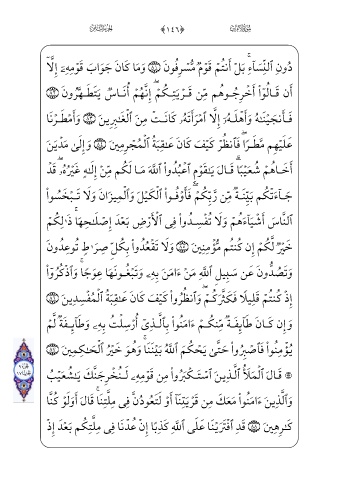 سورة الأعراف ﴿١٤٦﴾ الجزء الثامن
دُونِ ٱلنِّسَآءِۚ بَلْ أَنتُمْ قَوْمٌ مُّسْرِفُونَ وَمَا كَانَ جَوَابَ قَوْمِهِۦٓ إِلَّآ
أَن قَالُوٓاْ أَخْرِجُوهُم مِّن قَرْيَتِكُمْۖ إِنَّهُمْ أُنَاسٌ يَتَطَهَّرُونَ
فَأَنجَيْنَٰهُ وَأَهْلَهُۥٓ إِلَّا ٱمْرَأَتَهُۥ كَانَتْ مِنَ ٱلْغَٰبِرِينَ وَأَمْطَرْنَا
عَلَيْهِم مَّطَرًاۖ فَٱنظُرْ كَيْفَ كَانَ عَٰقِبَةُ ٱلْمُجْرِمِينَ وَإِلَىٰ مَدْيَنَ
أَخَاهُمْ شُعَيْبًاۗ قَالَ يَٰقَوْمِ ٱعْبُدُواْ ٱللَّهَ مَا لَكُم مِّنْ إِلَٰهٍ غَيْرُهُۥۖ قَدْ
جَآءَتْكُم بَيِّنَةٌ مِّن رَّبِّكُمْۖ فَأَوْفُواْ ٱلْكَيْلَ وَٱلْمِيزَانَ وَلَا تَبْخَسُواْ
ٱلنَّاسَ أَشْيَآءَهُمْ وَلَا تُفْسِدُواْ فِى ٱلْأَرْضِ بَعْدَ إِصْلَٰحِهَاۚ ذَٰلِكُمْ
خَيْرٌ لَّكُمْ إِن كُنتُم مُّؤْمِنِينَ وَلَا تَقْعُدُواْ بِكُلِّ صِرَٰطٍ تُوعِدُونَ
وَتَصُدُّونَ عَن سَبِيلِ ٱللَّهِ مَنْ ءَامَنَ بِهِۦ وَتَبْغُونَهَا عِوَجًاۚ وَٱذْكُرُوٓاْ
إِذْ كُنتُمْ قَلِيلًا فَكَثَّرَكُمْۖ وَٱنظُرُواْ كَيْفَ كَانَ عَٰقِبَةُ ٱلْمُفْسِدِينَ
وَإِن كَانَ طَآئِفَةٌ مِّنكُمْ ءَامَنُواْ بِٱلَّذِىٓ أُرْسِلْتُ بِهِۦ وَطَآئِفَةٌ لَّمْ
يُؤْمِنُواْ فَٱصْبِرُواْ حَتَّىٰ يَحْكُمَ ٱللَّهُ بَيْنَنَاۚ وَهُوَ خَيْرُ ٱلْحَٰكِمِينَ
۞ قَالَ ٱلْمَلَأُ ٱلَّذِينَ ٱسْتَكْبَرُواْ مِن قَوْمِهِۦ لَنُخْرِجَنَّكَ يَٰشُعَيْبُ
وَٱلَّذِينَ ءَامَنُواْ مَعَكَ مِن قَرْيَتِنَآ أَوْ لَتَعُودُنَّ فِى مِلَّتِنَاۚ قَالَ أَوَلَوْ كُنَّا
كَٰرِهِينَ قَدِ ٱفْتَرَيْنَا عَلَى ٱللَّهِ كَذِبًا إِنْ عُدْنَا فِى مِلَّتِكُم بَعْدَ إِذْ